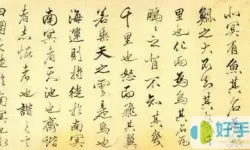 北冥有魚其名為
鯤之大不知其幾千
里也化而為鳥其名為
鵬鵬之背不知其幾
千里也怒而飛其翼
若垂天之雲是鳥也
海運則將徙於南冥
南冥者天池也齊諧
者志怪者也諧之